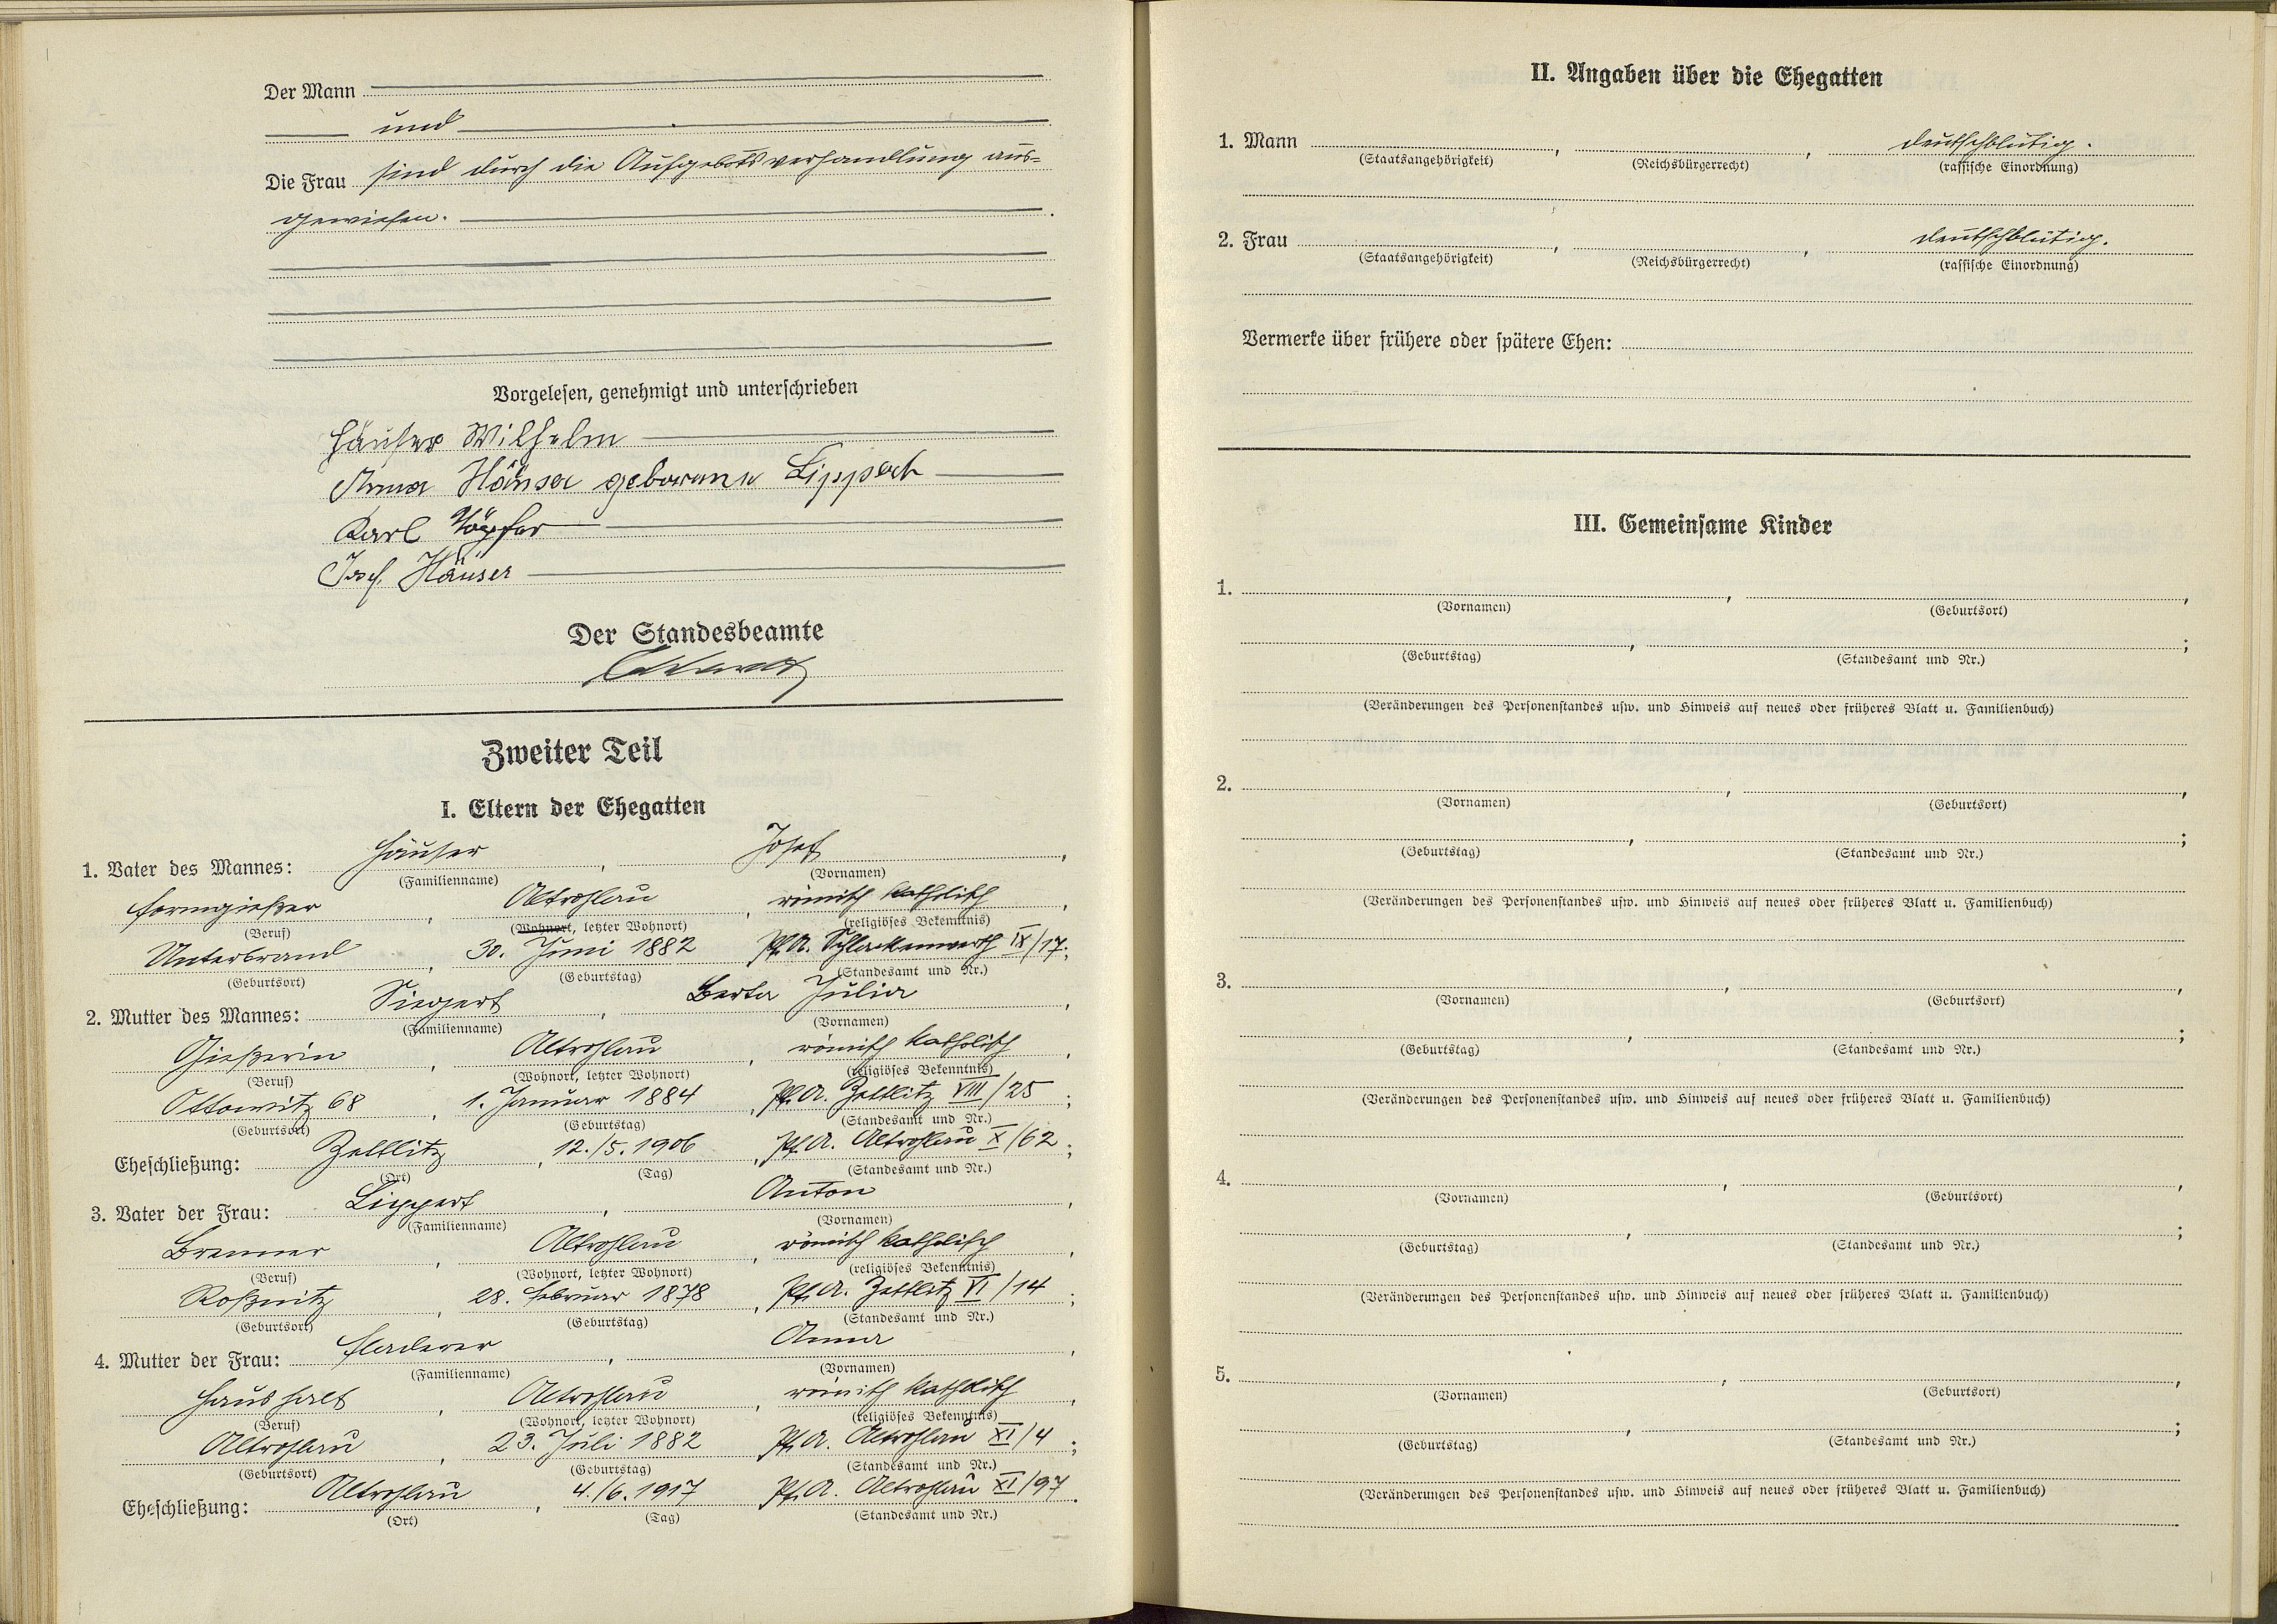 Der Mann
und
Die Frau sind durch die Aufgebotsverhandlung aus-
gewiesen.
Vorgelesen, genehmigt und unterschrieben
Häuser Wilhelm
Anna Häuser geborene Lippert
Karl
Josef Häuser
Der Standesbeamte
Zweiter Teil
I. Eltern der Ehegatten
1. Vater des Mannes: Häuser, Josef,
(Familienname) (Vornamen)
Formgießer, Altrohlau, römisch katholisch,
(Beruf) (Wohnort, letzter Wohnort) (religiöses Bekenntnis)
Unterbrand, 30. Juni 1882 Pf.A. Schlackenwerth IX/17;
(Geburtsort) (Geburtstag) (Standesamt und Nr.)
2. Mutter des Mannes: Siegert, Berta Julia,
(Familienname) (Vornamen)
Gießerin, Altrohlau, römisch katholisch,
(Beruf) (Wohnort, letzter Wohnort) (religiöses Bekenntnis)
Ottowitz 68, 1. Januar 1884, Pf.A. Zettlitz VIII/25;
(Geburtsort) (Geburtstag) (Standesamt und Nr.)
Eheschließung: Zettlitz, 12./5.1906, Pf.A. Altrohlau X/62;
(Ort) (Tag) (Standesamt und Nr.)
3. Vater der Frau: Lippert, Anton,
(Familienname) (Vornamen)
Brenner, Altrohlau, römisch katholisch,
(Beruf) (Wohnort, letzter Wohnort) (religiöses Bekenntnis)
Roßnitz, 28. Februar 1878, Pf.A. Zettlitz VI/14;
(Geburtsort) (Geburtstag) (Standesamt und Nr.)
4. Mutter der Frau: Fladerer, Anna,
(Familienname) (Vornamen)
Haushalt, Altrohlau, römisch katholisch,
(Beruf) (Wohnort, letzter Wohnort) (religiöses Bekenntnis)
Altrohlau, 23. Juli 1882, Pf.A. Altrohlau XI/4;
(Geburtsort) (Geburtstag) (Standesamt und Nr.)
Eheschließung: Altrohlau, 4./6.1917, Pf.A. Altrohlau XI/97.
(Ort) (Tag) (Standesamt und Nr.)
II. Angaben über die Ehegatten
1. Mann , , deutschblütig.
(Staatsangehörigkeit) (Reichsbürgerrecht) (rassische Einordnung)
2. Frau , , deutschblütig.
(Staatsangehörigkeit) (Reichsbürgerrecht) (rassische Einordnung)
Vermerke über frühere oder spätere Ehen:
III. Gemeinsame Kinder
1. , ,
(Vornamen) (Geburtsort)
, ;
(Geburtstag) (Standesamt und Nr.)
(Veränderungen des Personenstandes usw. und Hinweis auf neues oder früheres Blatt u. Familienbuch)
2. , ,
(Vornamen) (Geburtsort)
, ;
(Geburtstag) (Standesamt und Nr.)
(Veränderungen des Personenstandes usw. und Hinweis auf neues oder früheres Blatt u. Familienbuch)
3. , ,
(Vornamen) (Geburtsort)
, ;
(Geburtstag) (Standesamt und Nr.)
(Veränderungen des Personenstandes usw. und Hinweis auf neues oder früheres Blatt u. Familienbuch)
4. , ,
(Vornamen) (Geburtsort)
, ;
(Geburtstag) (Standesamt und Nr.)
(Veränderungen des Personenstandes usw. und Hinweis auf neues oder früheres Blatt u. Familienbuch)
5. , ,
(Vornamen) (Geburtsort)
, ;
(Geburtstag) (Standesamt und Nr.)
(Veränderungen des Personenstandes usw. und Hinweis auf neues oder früheres Blatt u. Familienbuch)